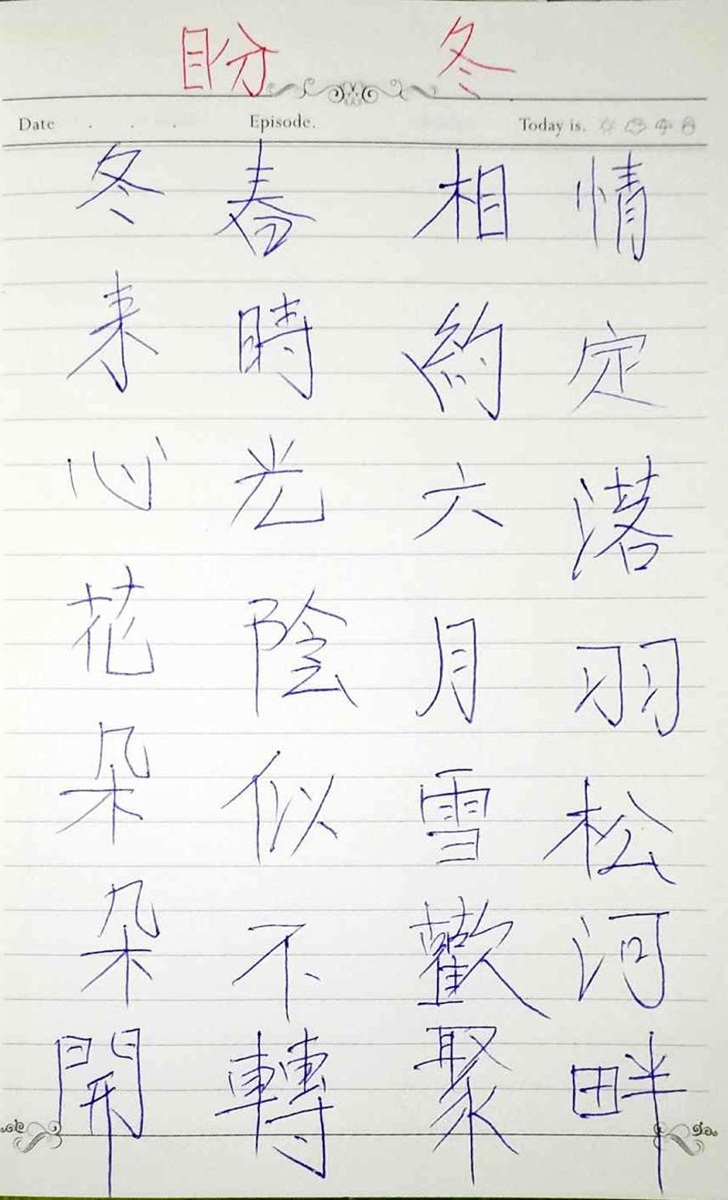 盼 冬
Date . . . Episode. Today is.
情定落羽松河畔
相約六月雪歡聚
春時光陰似不轉
冬来心花朵朵開